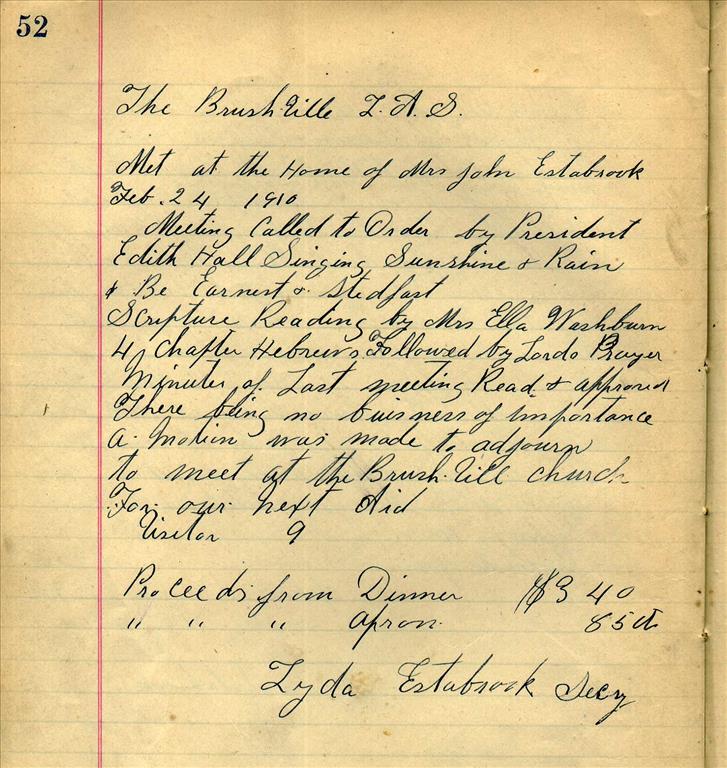 52
The Brushville L. A. S.
Met at the Home of Mrs John Estabrook
Feb. 24 1910
Meeting Called to Order by President
Edith Hall Singing Sunshine & Rain
& Be Earnest & Stedfast
Scripture Reading by Mrs Ella Washburn
4 chapter Hebrews Followed by Lords Prayer
Minutes of Last meeting Read & approved
There being no buisness of importance
a motion was made to adjourn
to meet at the Brushvill church
For our next Aid
Visitor 9
Proceeds from Dinner $3 40
" " " apron 85 cts
Lyda Estabrook Secy